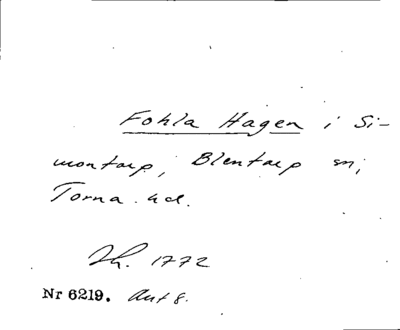 Fohla Hagen i Si-
montorp, Blentarp sn,
Torna hd.
Lh. 1772
Nr 6219. Akt 8.